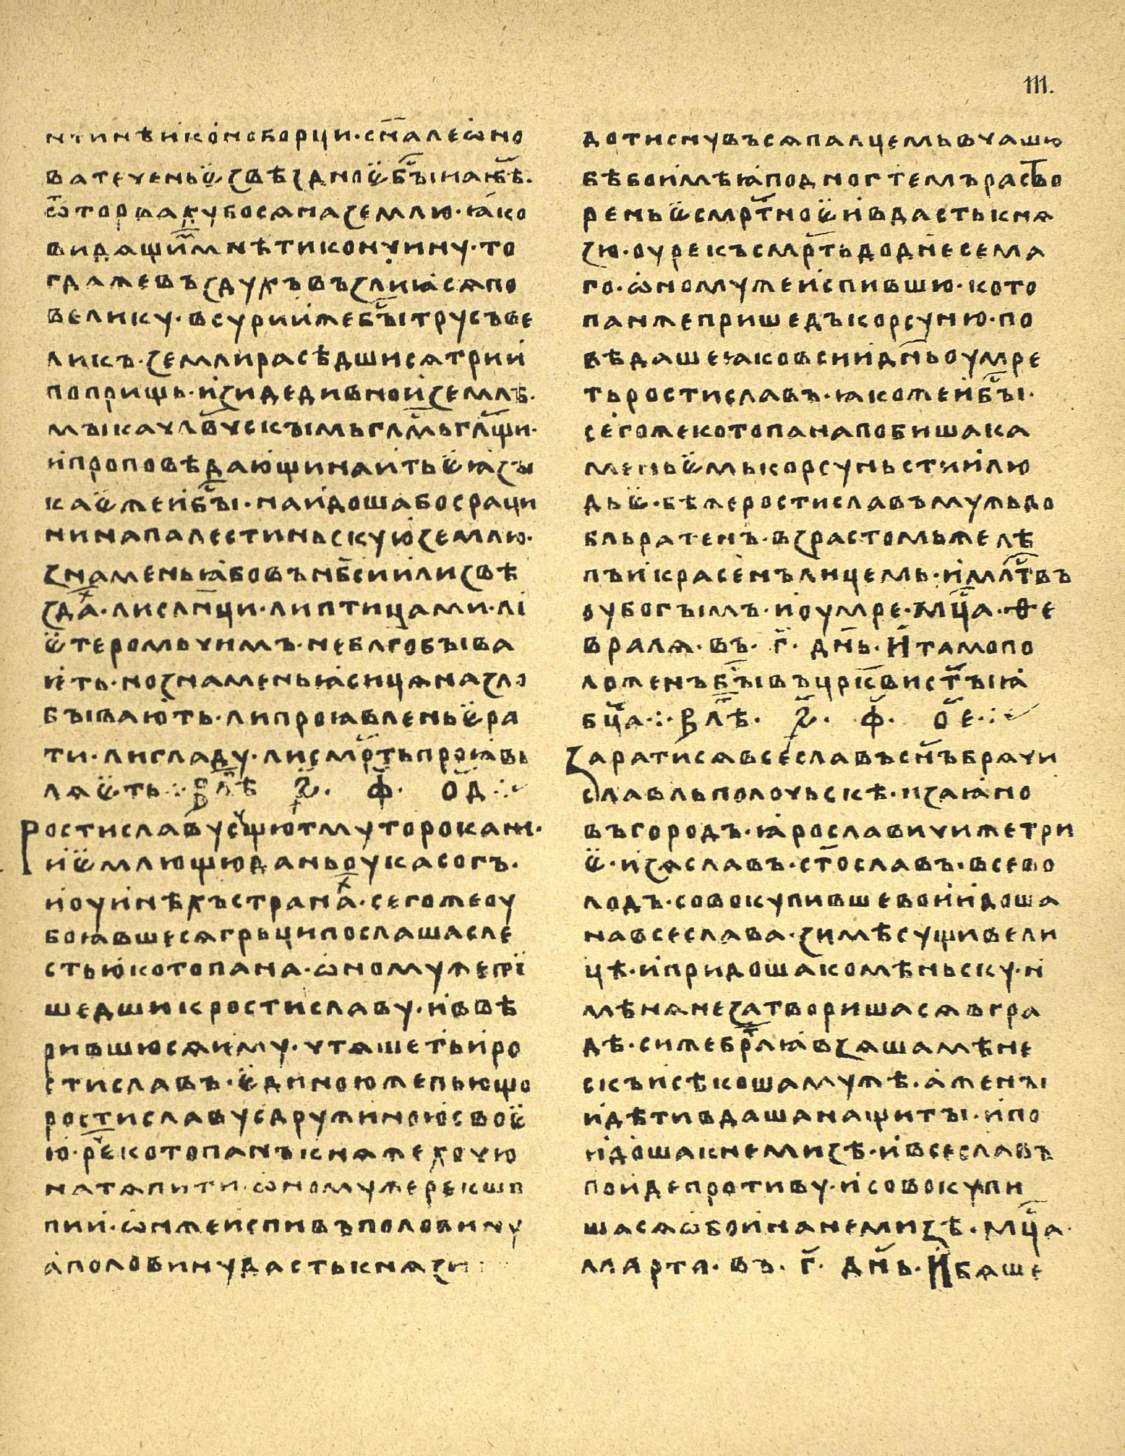 111.
нтинѣ иконоборци · сн҃а леѡно
ва теченьѥ звѣздноѥ бы҇ на нб҃ѣ ·
ѿторваху бо сѧ на землю · ꙗко
видѧщим мнѣти кончину · то
гда же въздухъ възлиꙗсѧ по
велику · в сурии же бы҇ трусъ ве
ликъ · земли расѣдшисѧ трии
поприщь · изиде дивно и землѣ ·
мъıка члв҃чскъıмь гл҃мь гл҃щи ·
и проповѣдающи наитьѥ ꙗзъı
ка ѥже и бъı҇ · наидоша бо сраци
ни на палестиньскую землю ·
знаменьꙗ бо въ нб҃си или звѣ
зда · ли слн҃ци · ли птицами · лі
ѥтеромь чимъ · не бл҃го бъıва
ить · но знаменьꙗ сицѧ на зло
бъıвають · ли проꙗвленьѥ ра
ти · ли гладу · ли смр҃ть проꙗвь
лѧѥть ⁘ в лѣ҇ ҂ѕ҃ · ф҃ · о҃д ⁘
Ростиславу сущю тмуторокани ·
и ѥмлющю дань оу касогъ ·
и оу инѣхъ страна · сего же оу
боꙗвшесѧ грьци послаша с ле
стью котопана · ѡному же прі
шедши к ростиславу · и ввѣ
рившюсѧ иму · чтѧшеть и ро
стиславъ · ѥдиною же пьющю
ростиславу с дружиною своѥ
ю · реч҇ котопанъ кнѧже хочю
на тѧ пити · ѡному же рекшю
пии · ѡн же испивъ половину
а половину дасть кнѧзи
дотиснувъсѧ палцемь в чашю
бѣ бо имѣꙗ под ногтемъ раство
реньѥ смр҃тноѥ и вдасть кнѧ
зю · оурекъ смр҃ть до дне сема
го · ѡному же испившю · кото
пан же пришедъ корсуню · по
вѣдаше ꙗко в сии дн҃ь оумре
ть ростиславъ · ꙗкоже и бъı҇ ·
сего же котопана побиша ка
меньѥмь корсуньстии лю
дьѥ · бѣ же ростиславъ мужь до
бль ратенъ · взрастомь же лѣ
пъ и красенъ лицемь · и млт҇въ
оубогъımъ · и оумре · мц҃а · фе
враля · въ · г҃ · дн҃ь · И тамо по
ложенъ бъı҇ въ црк҃ви ст҃ъıꙗ
бц҃а ⁘ В лѣ҇ · ҂ѕ҃ · ф҃ · о҃е ⁘
Заратисѧ всеславъ сн҃ъ брѧчи
славль полочьскѣ · и заꙗ но
въгородъ · ꙗрославичи же три
ѥ · изѧславъ · ст҃ославъ · всево
лодъ · совокупивше вои идоша
на всеслава · зимѣ сущи вели
цѣ · и придоша ко мѣньску · и
мѣнѧне затворишасѧ въ гра
дѣ · си же братьꙗ взѧша мѣне
скъ исѣкоша мужѣ · а женъı
и дѣти вдаша на щитъı · и по
идоша к немизѣ · и всеславъ
поиде противу · и совокупи
шасѧ ѡбои на немизѣ · мц҃а ·
марта · въ · г҃ · дн҃ь · И бѧше